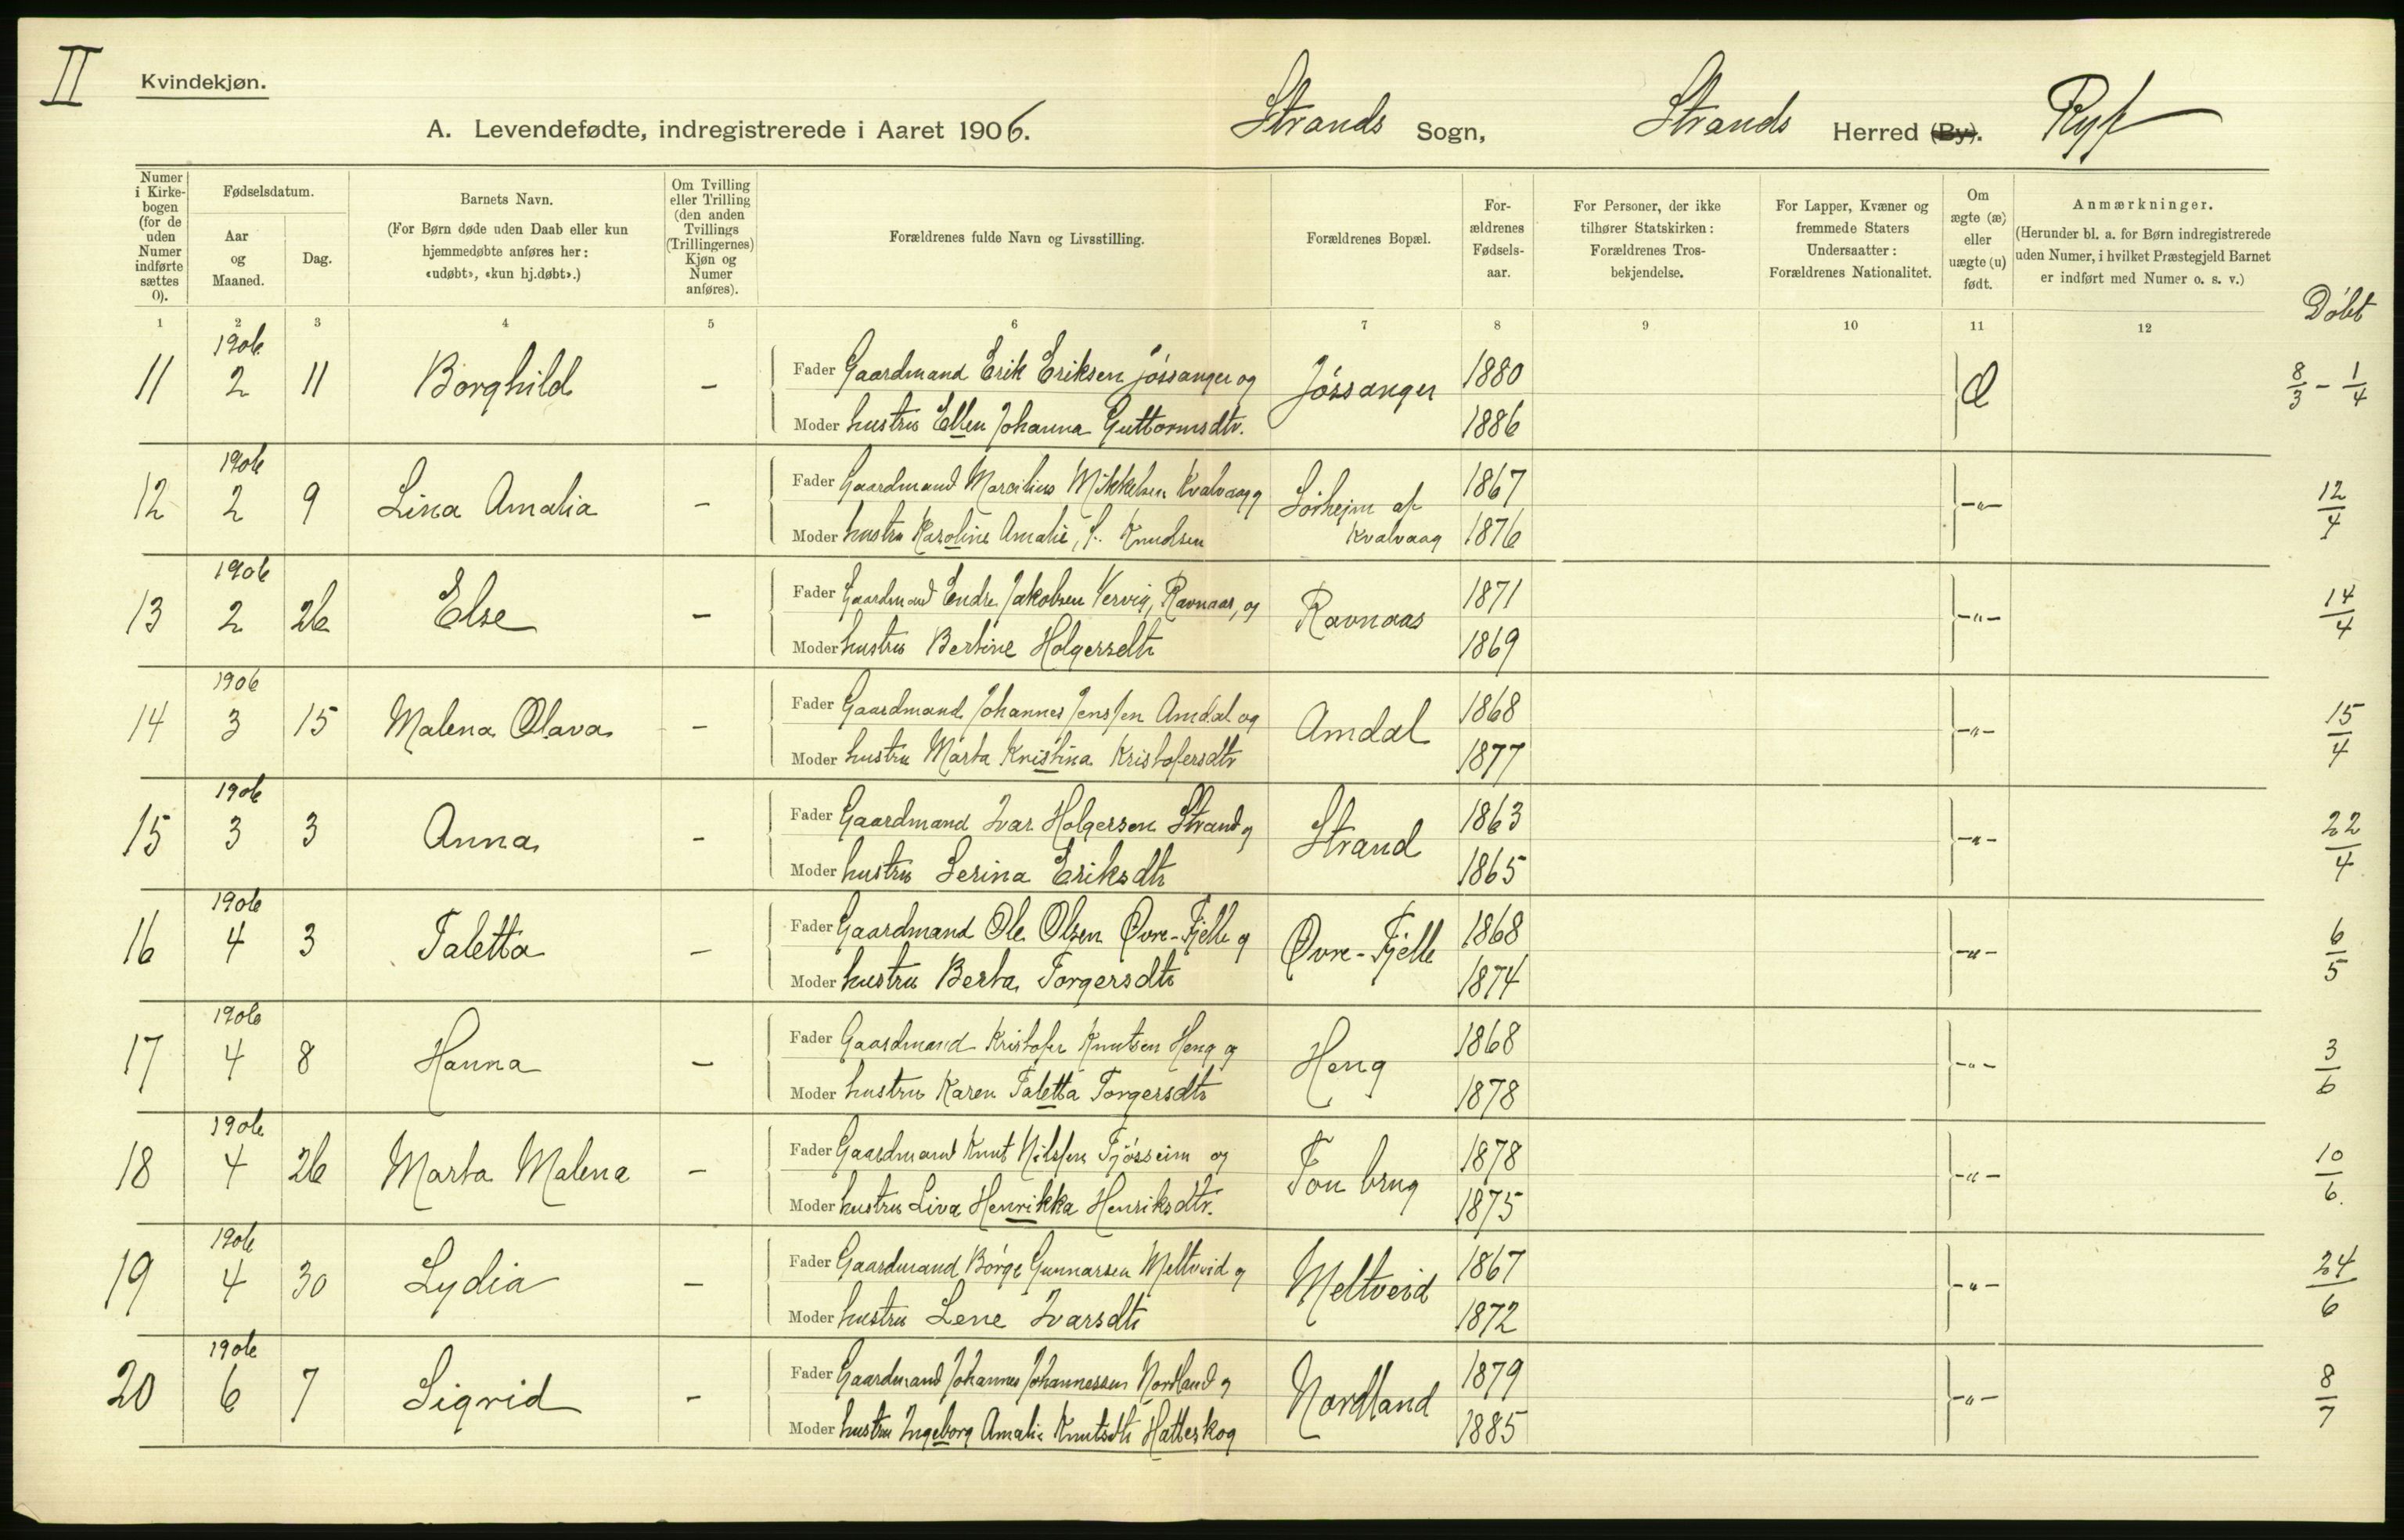 II
Kvindekjøn.
A. Levendefødte, indregistrerede i Aaret 1906. Strands Sogn, Strands Herred (By). Ryf
Numer i Kirkebogen (for de uden Numer indførte sættes 0).
Fødselsdatum.
Aar og Maaned.
Dag.
Barnets Navn.
(For Børn døde uden Daab eller kun hjemmedøbte anføres her: «udøbt», «kun hj.døbt».)
Om Tvilling eller Trilling (den anden Tvillings (Trillingernes) Kjøn og Numer anføres).
Forældrenes fulde Navn og Livsstilling.
Forældrenes Bopæl.
Forældrenes Fødselsaar.
For Personer, der ikke tilhører Statskirken: Forældrenes Trosbekjendelse.
For Lapper, Kvæner og fremmede Staters Undersaatter: Forældrenes Nationalitet.
Om ægte (æ) eller uægte (u) født.
Anmærkninger.
(Herunder bl. a. for Børn indregistrerede uden Numer, i hvilket Præstegjeld Barnet er indført med Numer o. s. v.)
Döbt
1 2 3 4 5 6 7 8 9 10 11 12
11 1906 2 11 Borghild - Fader Gaardmand Erik Eriksen Jössanger og Jössanger 1880 Æ 8/3 - 1/4
Moder hustru Ellen Johanna Guttormsdtr. 1886
12 1906 2 9 Lina Amalia - Fader Gaardmand Marcilius Mikkelsen Kvalvaag Sörheim af Kvalvaag 1867 -"- 12/4
Moder hustru Karoline Amalie, f. Knudsen 1876
13 1906 2 26 Else - Fader Gaardmand Endre Jakobsen Vervig, Ravnaas, og Ravnaas 1871 -"- 14/4
Moder hustru Bertine Holgersdtr 1869
14 1906 3 15 Malena Olava - Fader Gaardmand Johannes Jensen Amdal og Amdal 1868 -"- 15/4
Moder hustru Marta Kristina Kristofersdtr 1877
15 1906 3 3 Anna - Fader Gaardmand Ivar Holgersen Strand og Strand 1863 -"- 22/4
Moder hustru Serina Eriksdtr 1865
16 1906 4 3 Taletta - Fader Gaardmand Ole Olsen Øvre-Fjelle og Øvre-Fjelle 1868 -"- 6/5
Moder hustru Berta Torgersdtr 1874
17 1906 4 8 Hanna - Fader Gaardmand Kristofer Knutsen Heng og Heng 1868 -"- 3/6
Moder hustru Karen Taletta Torgersdtr 1878
18 1906 4 26 Marta Malena - Fader Gaardmand Knut Nilssen Tjösseim og Tou brug 1878 -"- 10/6.
Moder hustru Liva Henrikka Henriksdtr. 1875
19 1906 4 30 Lydia - Fader Gaardmand Börge Gunnarsen Meltveid og Meltveid 1867 -"- 24/6
Moder hustru Lene Ivarsdtr 1872
20 1906 6 7 Sigrid - Fader Gaardmand Johannes Johannessen Nordland og Nordland 1879 -"- 8/7
Moder hustru Ingeborg Amalie Knutsdtr Hatteskog 1885